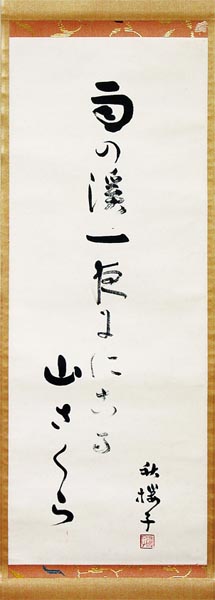 雨の溪一夜ににこる
山さくら
秋櫻子